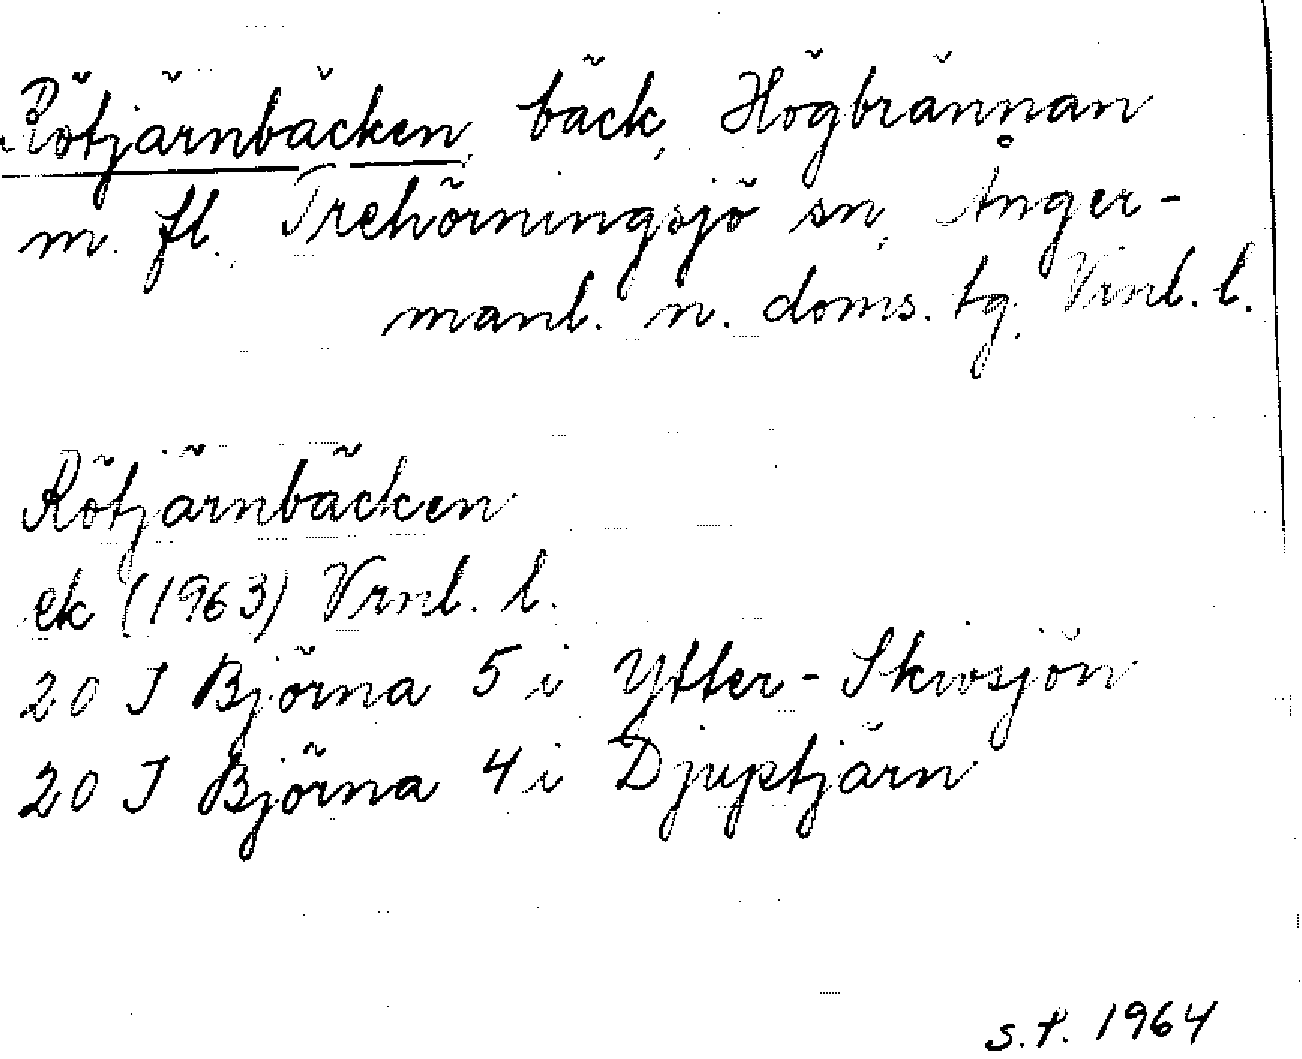 Rötjärnbäcken, bäck, Högbrännan
m. fl., Trehörningsjö sn, Ånger-
manl. n. doms. tg, Vrnl. l.
Rötjärnbäcken
ek (1963) Vrnl. l.
20 J Björna 5 i Ytter-Skivsjön
20 J Björna 4 i Djuptjärn
s.t. 1964